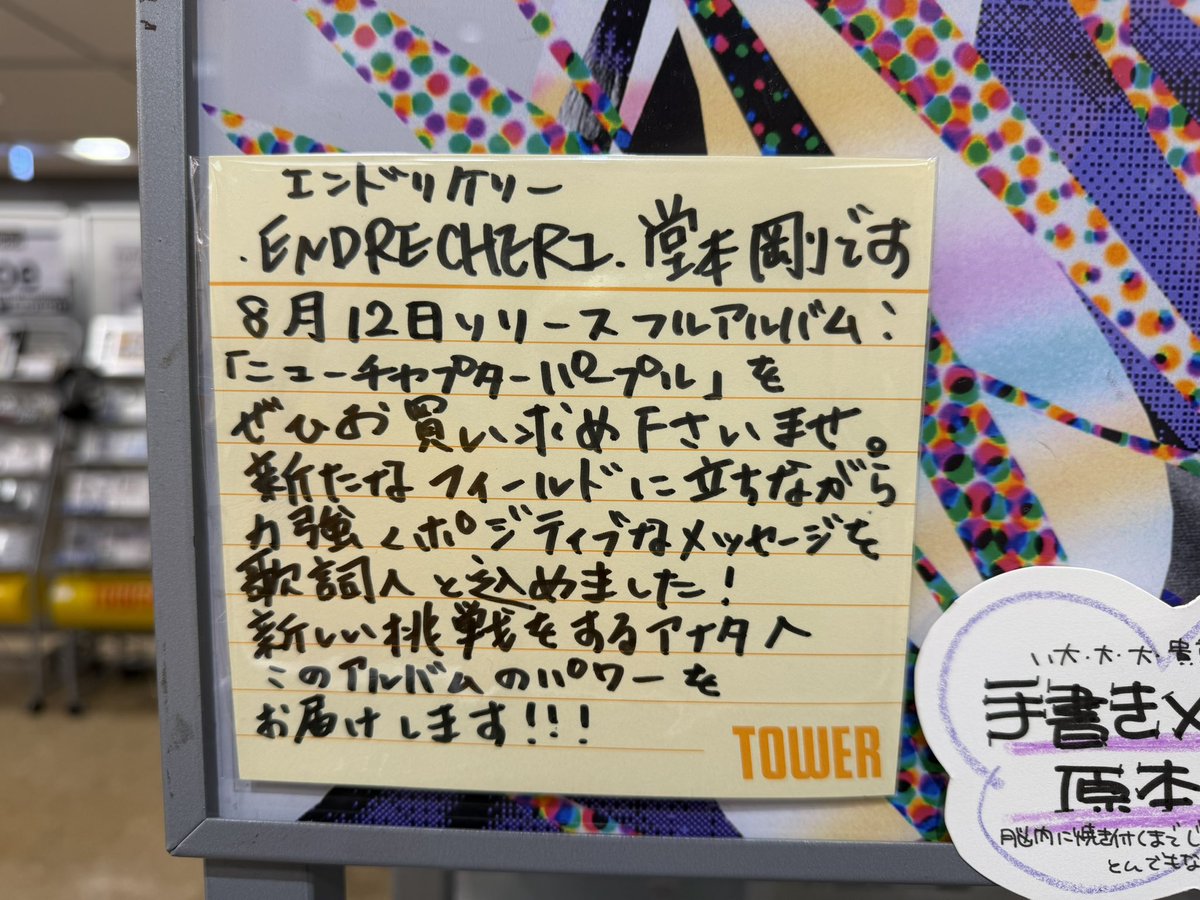 エンドリケリー
.ENDRECHERI. 堂本剛です
8月12日リリースフルアルバム:
「ニューチャプターパープル」を
ぜひお買い求め下さいませ。
新たなフィールドに立ちながら
力強くポジティブなメッセージを
歌詞へと込めました!
新しい挑戦をするアナタへ
このアルバムのパワーを
お届けします!!!
TOWER
い大・大・大・貴
手書きメ
原本
脳内に焼き付くまでじ
とんでもな
TOWER